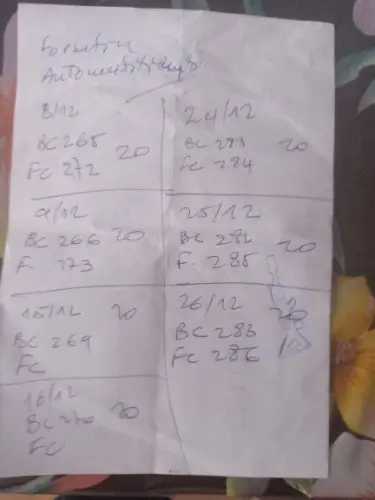 8/12
BC 265 20
FC 272
9/12
BC 266 20
F. 273
15/12 20
BC 269
FC
16/12
BC 270 20
FC
24/12
BC 281 20
FC 284
25/12
BC 282 20
F. 285
26/12 20
BC 283
FC 286